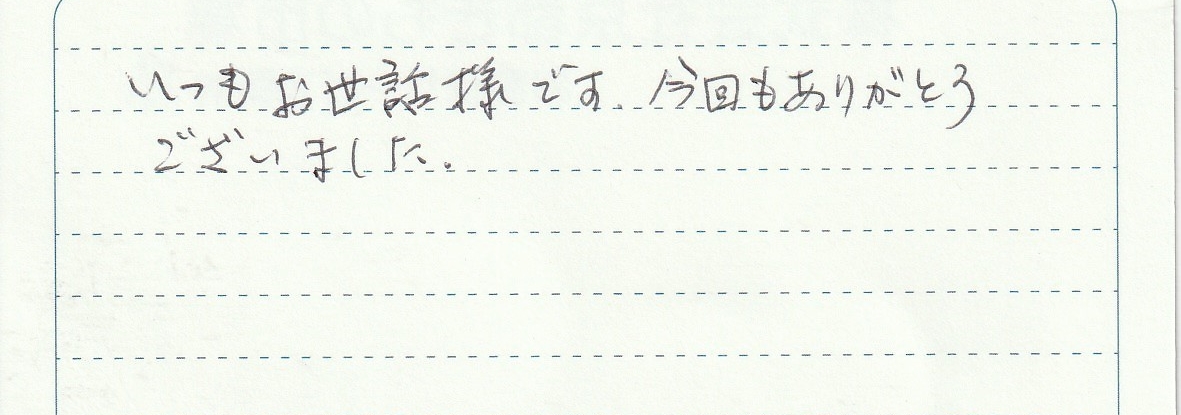 いつもお世話様です.今回もありがとう
ございました.